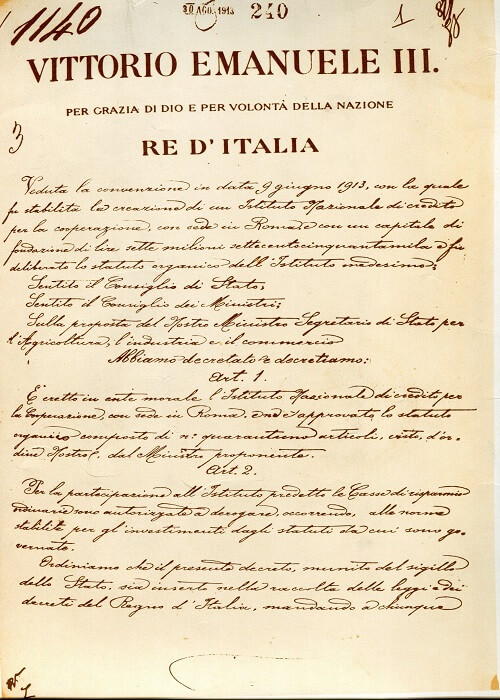 1140
30 AGO. 1913
240
1
VITTORIO EMANUELE III.
PER GRAZIA DI DIO E PER VOLONTÀ DELLA NAZIONE
3
RE D'ITALIA
Veduta la convenzione in data 9 giugno 1913, con la quale
fu stabilita la creazione di un Istituto Nazionale di credito
per la cooperazione, con sede in Roma e con un capitale di
fondazione di lire sette milioni settecentocinquantamila e fu
deliberato lo statuto organico dell'Istituto medesimo;
Sentito il Consiglio di Stato;
Sentito il Consiglio dei Ministri;
Sulla proposta del Nostro Ministro Segretario di Stato per
l'Agricoltura, l'industria e il commercio
Abbiamo decretato e decretiamo:
Art. 1.
E' eretto in ente morale l'Istituto Nazionale di credito per
la Cooperazione, con sede in Roma, ed è approvato lo statuto
organico composto di n: quarantuno articoli, visto, d'or-
dine Nostro, dal Ministro proponente.
Art. 2.
Per la partecipazione all'Istituto predetto le Casse di risparmio
ordinarie sono autorizzate a derogare, occorrendo, alle norme
stabilite per gli investimenti dagli statuti da cui sono go-
vernate.
Ordiniamo che il presente decreto, munito del sigillo
dello Stato, sia inserto nella raccolta delle leggi e dei
decreti del Regno d'Italia, mandando a chiunque